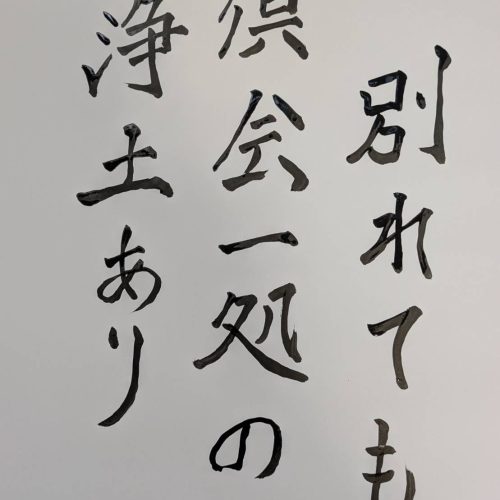 別れても
倶会一処の
浄土あり